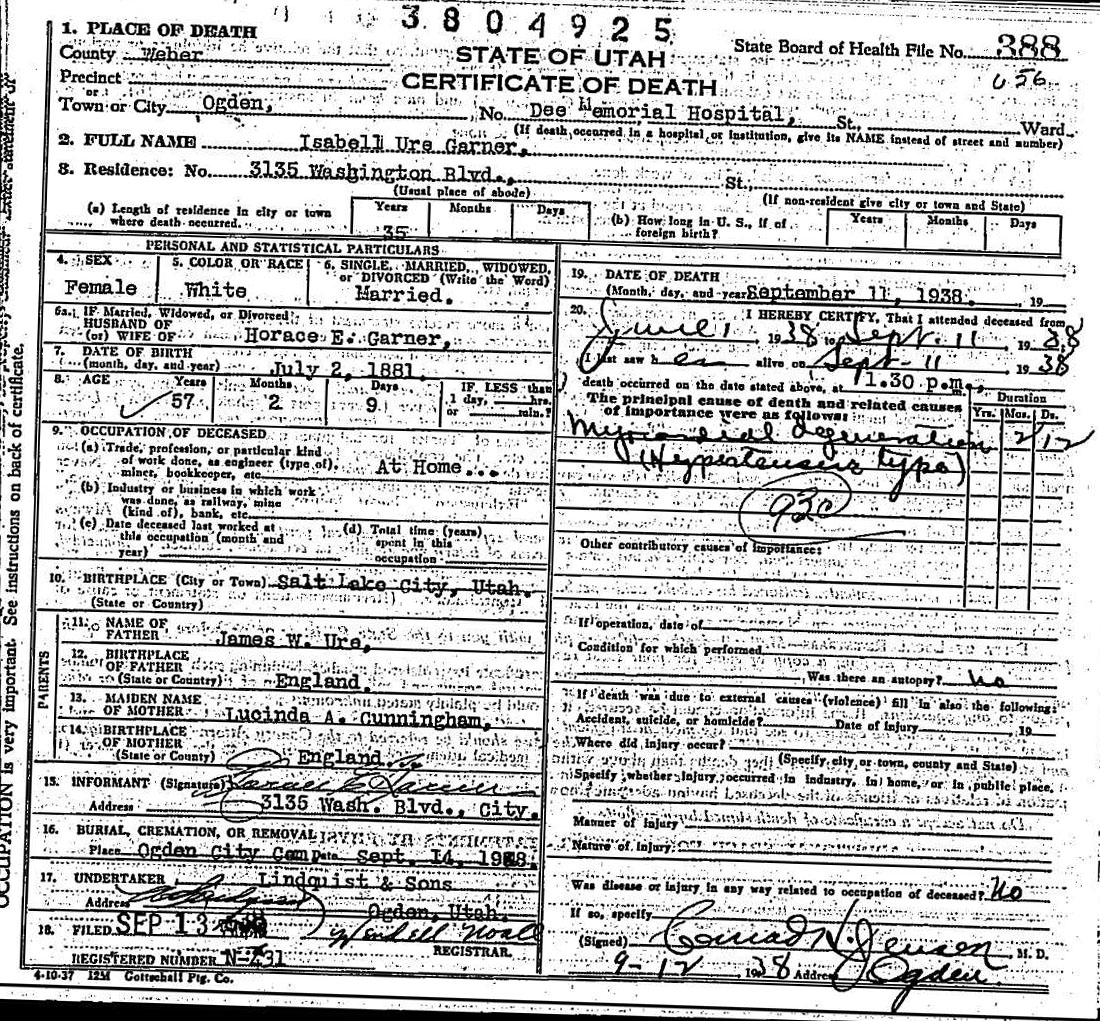 3 8 0 4 9 2 5
1. PLACE OF DEATH
County Weber
STATE OF UTAH
State Board of Health File No. 388
Precinct
or
CERTIFICATE OF DEATH
056
Town or City Ogden, No. Dee Memorial Hospital, St., Ward
(If death occurred in a hospital or institution, give its NAME instead of street and number)
2. FULL NAME Isabell Ure Garner,
3. Residence: No. 3135 Washington Blvd., St.,
(Usual place of abode)
(If non-resident give city or town and State)
(a) Length of residence in city or town where death occurred. Years 35 Months Days
(b) How long in U. S., if of foreign birth? Years Months Days
PERSONAL AND STATISTICAL PARTICULARS
4. SEX
Female
5. COLOR OR RACE
White
6. SINGLE, MARRIED, WIDOWED, or DIVORCED (Write the Word)
Married.
6a. IF Married, Widowed, or Divorced
HUSBAND OF
(or) WIFE OF Horace E. Garner,
7. DATE OF BIRTH
(month, day, and year) July 2, 1881.
8. AGE Years 57 Months 2 Days 9 IF LESS than 1 day, hrs. or min.?
9. OCCUPATION OF DECEASED
(a) Trade, profession, or particular kind
of work done, as engineer (type of), At Home...
miner, bookkeeper, etc.
(b) Industry or business in which work
was done, as railway, mine
(kind of), bank, etc.
(c) Date deceased last worked at
this occupation (month and
year)
(d) Total time (years)
spent in this
occupation
10. BIRTHPLACE (City or Town) Salt Lake City, Utah.
(State or Country)
PARENTS
11. NAME OF
FATHER James W. Ure,
12. BIRTHPLACE
OF FATHER
(State or Country) England.
13. MAIDEN NAME
OF MOTHER Lucinda A. Cunningham,
14. BIRTHPLACE
OF MOTHER
(State or County) England.
15. INFORMANT (Signature) Horace E Garner
Address 3135 Wash. Blvd., City.
16. BURIAL, CREMATION, OR REMOVAL
Place Ogden City Cem Date Sept. 14, 1938.
17. UNDERTAKER Lindquist & Sons
Address Ogden, Utah.
18. FILED SEP 13 Wendell Noall
REGISTRAR.
REGISTERED NUMBER
4-10-37 12M Gottschall Ptg. Co.
19. DATE OF DEATH
(Month, day, and year) September 11, 1938. , 19
20. I HEREBY CERTIFY, That I attended deceased from
June 1 1938 to Sept. 11 1938
I last saw h er alive on Sept. 11 1938
death occurred on the date stated above, at 1.30 p.m.,
The principal cause of death and related causes
of importance were as follows:
Duration
Yrs. Mos. Ds.
Myocardial degeneration 2 12
(Hypertensive type)
93c
Other contributory causes of importance:
If operation, date of
Condition for which performed
Was there an autopsy? No
If death was due to external causes (violence) fill in also the following:
Accident, suicide, or homicide? Date of Injury , 19
Where did injury occur?
(Specify city or town, county and State)
Specify whether injury occurred in industry, in home, or in public place.
Manner of Injury
Nature of Injury
Was disease or injury in any way related to occupation of deceased? No
If so, specify
(Signed) Conrad H. Jensen M. D.
9-12 1938 Address Ogden.
OCCUPATION is very important. See instructions on back of certificate.